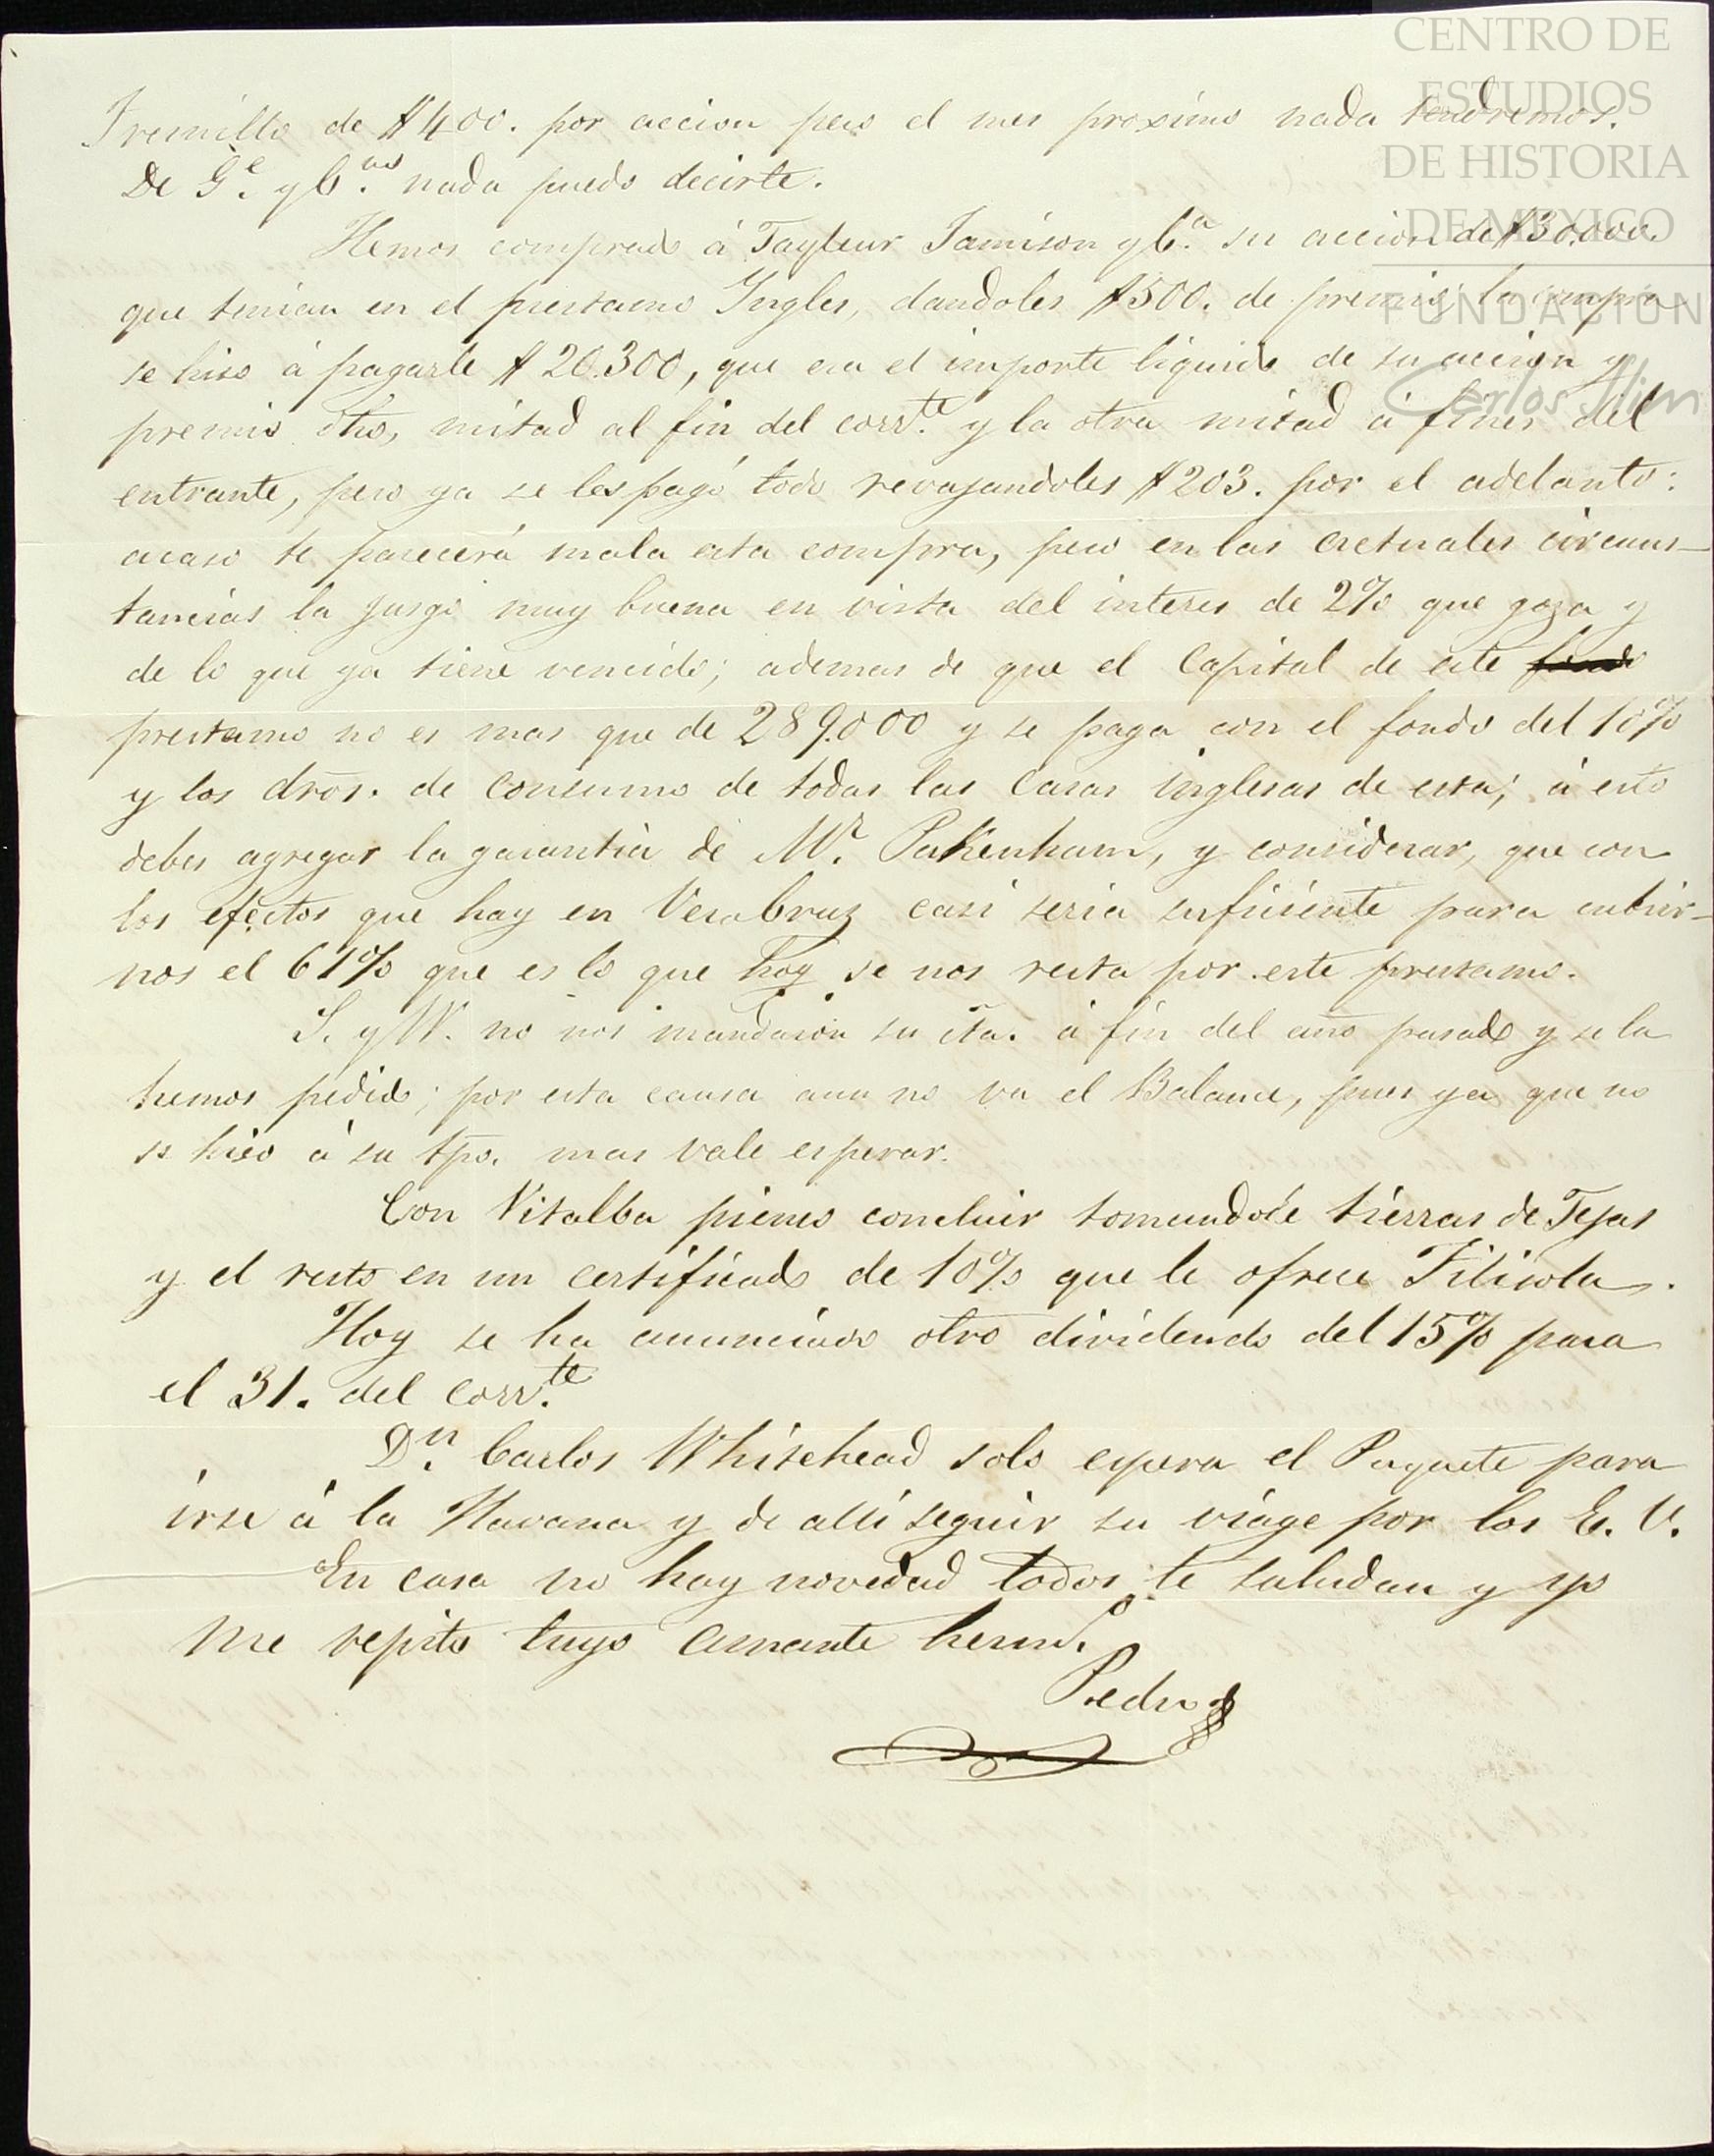 CENTRO DE
ESTUDIOS
DE HISTORIA
DE MEXICO
FUNDACIÓN
Carlos Slim
Fresnillo de $400. por accion pero el mes proximo nada tendremos.
De G.e y C.as nada puedo decirte.
Hemos comprado á Tayleur Jamison y C.a su accion de $30.000.
que tenian en el prestamo Yngles, dandoles $500. de premio; la compra
se hiso á pagarle $20.300, que era el importe liquido de su accion y
premio dho, mitad al fin del corr.te y la otra mitad á fines del
entrante, pero ya se les pagó todo revajandoles $203. por el adelanto:
acaso te parecerá mala esta compra, pero en las actuales circuns-
tancias la jusgo muy buena en vista del interes de 2% que goza y
de lo que ya tiene vencido; ademas de que el Capital de este fondo
prestamo no es mas que de 289.000 y se paga con el fondo del 10%
y los dros. de consumo de todas las Casas inglesas de esta; á esto
debes agregar la garantia de Mr. Pakenham, y considerar, que con
los efectos que hay en VeraCruz casi seria suficiente para cubrir-
nos el 61% que es lo que hoy se nos resta por este prestamo.
S. y W. no nos mandaron su cta. á fin del año pasado y se la
hemos pedido; por esta causa aun no va el Balance, pues ya que no
se hiso á su tpo. mas vale esperar.
Con Vitalba pienso concluir tomandole tierras de Tejas
y el resto en un certificado de 10% que le ofrece Filisola.
Hoy se ha anunciado otro dividendo del 15% para
el 31. del corr.te
Dn. Carlos Whitehead solo espera el Paquete para
irse á la Havana y de alli seguir su viage por los E. U.
En casa no hay novedad todos te saludan y yo
me repito tuyo amante herm.o
Pedro